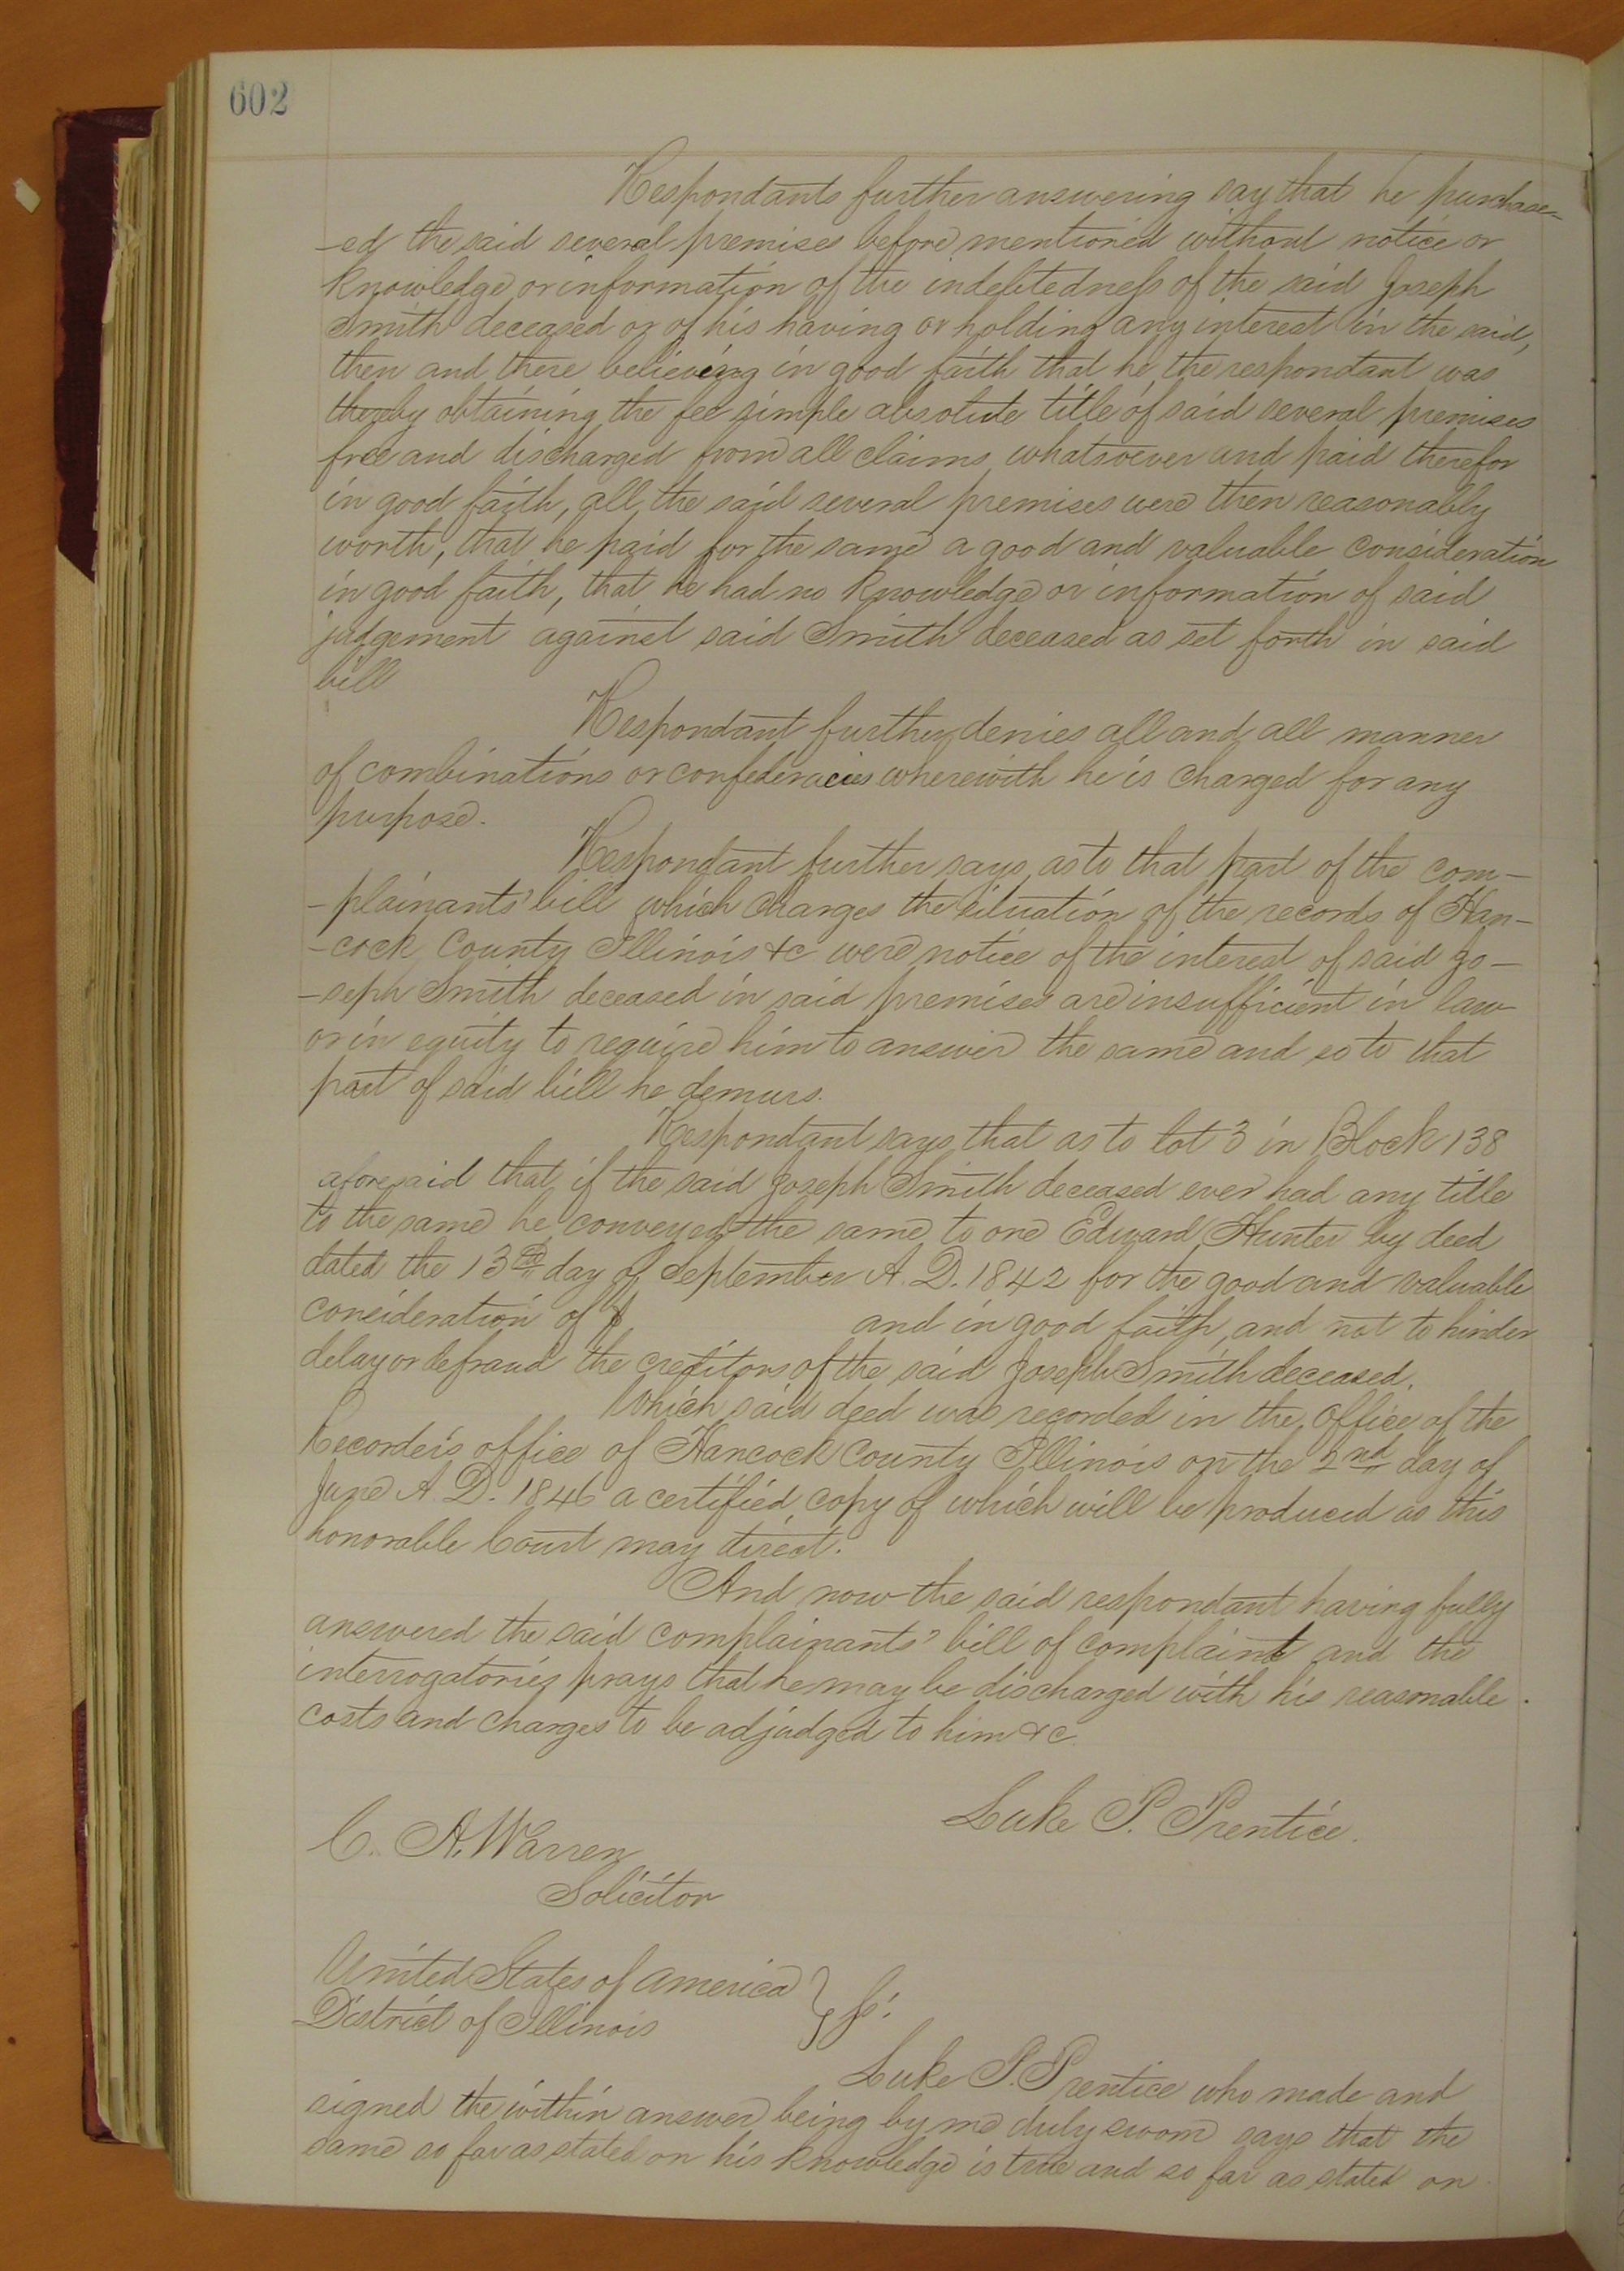 602
Respondants further answering say that he purchase-
-ed the said several premises before mentioned without notice or
knowledge or information of the indebtedness of the said Joseph
Smith deceased or of his having or holding any interest in the said,
then and there believing in good faith that he the respondant was
thereby obtaining the fee simple absolute title of said several premises
free and discharged from all claims whatsoever and paid therefor
in good faith, all the said several premises were then reasonably
worth, that he paid for the same a good and valuable consideration
in good faith, that he had no knowledge or information of said
judgement against said Smith deceased as set forth in said
bill
Respondant further denies all and all manner
of combinations or confederacies wherewith he is charged for any
purpose.
Respondant further says as to that part of the com-
-plainants' bill which charges the situation of the records of Han-
-cock County Illinois &c were notice of the interest of said Jo-
-seph Smith deceased in said premises are insufficient in law
or in equity to require him to answer the same and so to that
part of said bill he demurs.
Respondant says that as to lot 3 in Block 138
aforesaid that if the said Joseph Smith deceased ever had any title
to the same he conveyed the same to one Edward Hunter by deed
dated the 13th day of September A.D. 1842 for the good and valuable
consideration of $ and in good faith, and not to hinder
delay or defraud the creditors of the said Joseph Smith deceased.
Which said deed was recorded in the Office of the
Recorder's office of Hancock County Illinois on the 2nd day of
June A.D. 1846 a certified copy of which will be produced as this
honorable Court may direct.
And now the said respondant having fully
answered the said complainants' bill of complaint and the
interrogatories prays that he may be discharged with his reasonable
costs and charges to be adjudged to him &c.
Luke P. Prentice.
C. A. Warren
Solicitor
United States of America
District of Illinois } ss.
Luke P. Prentice who made and
signed the within answer being by me duly sworn says that the
same so far as stated on his knowledge is true and so far as stated on